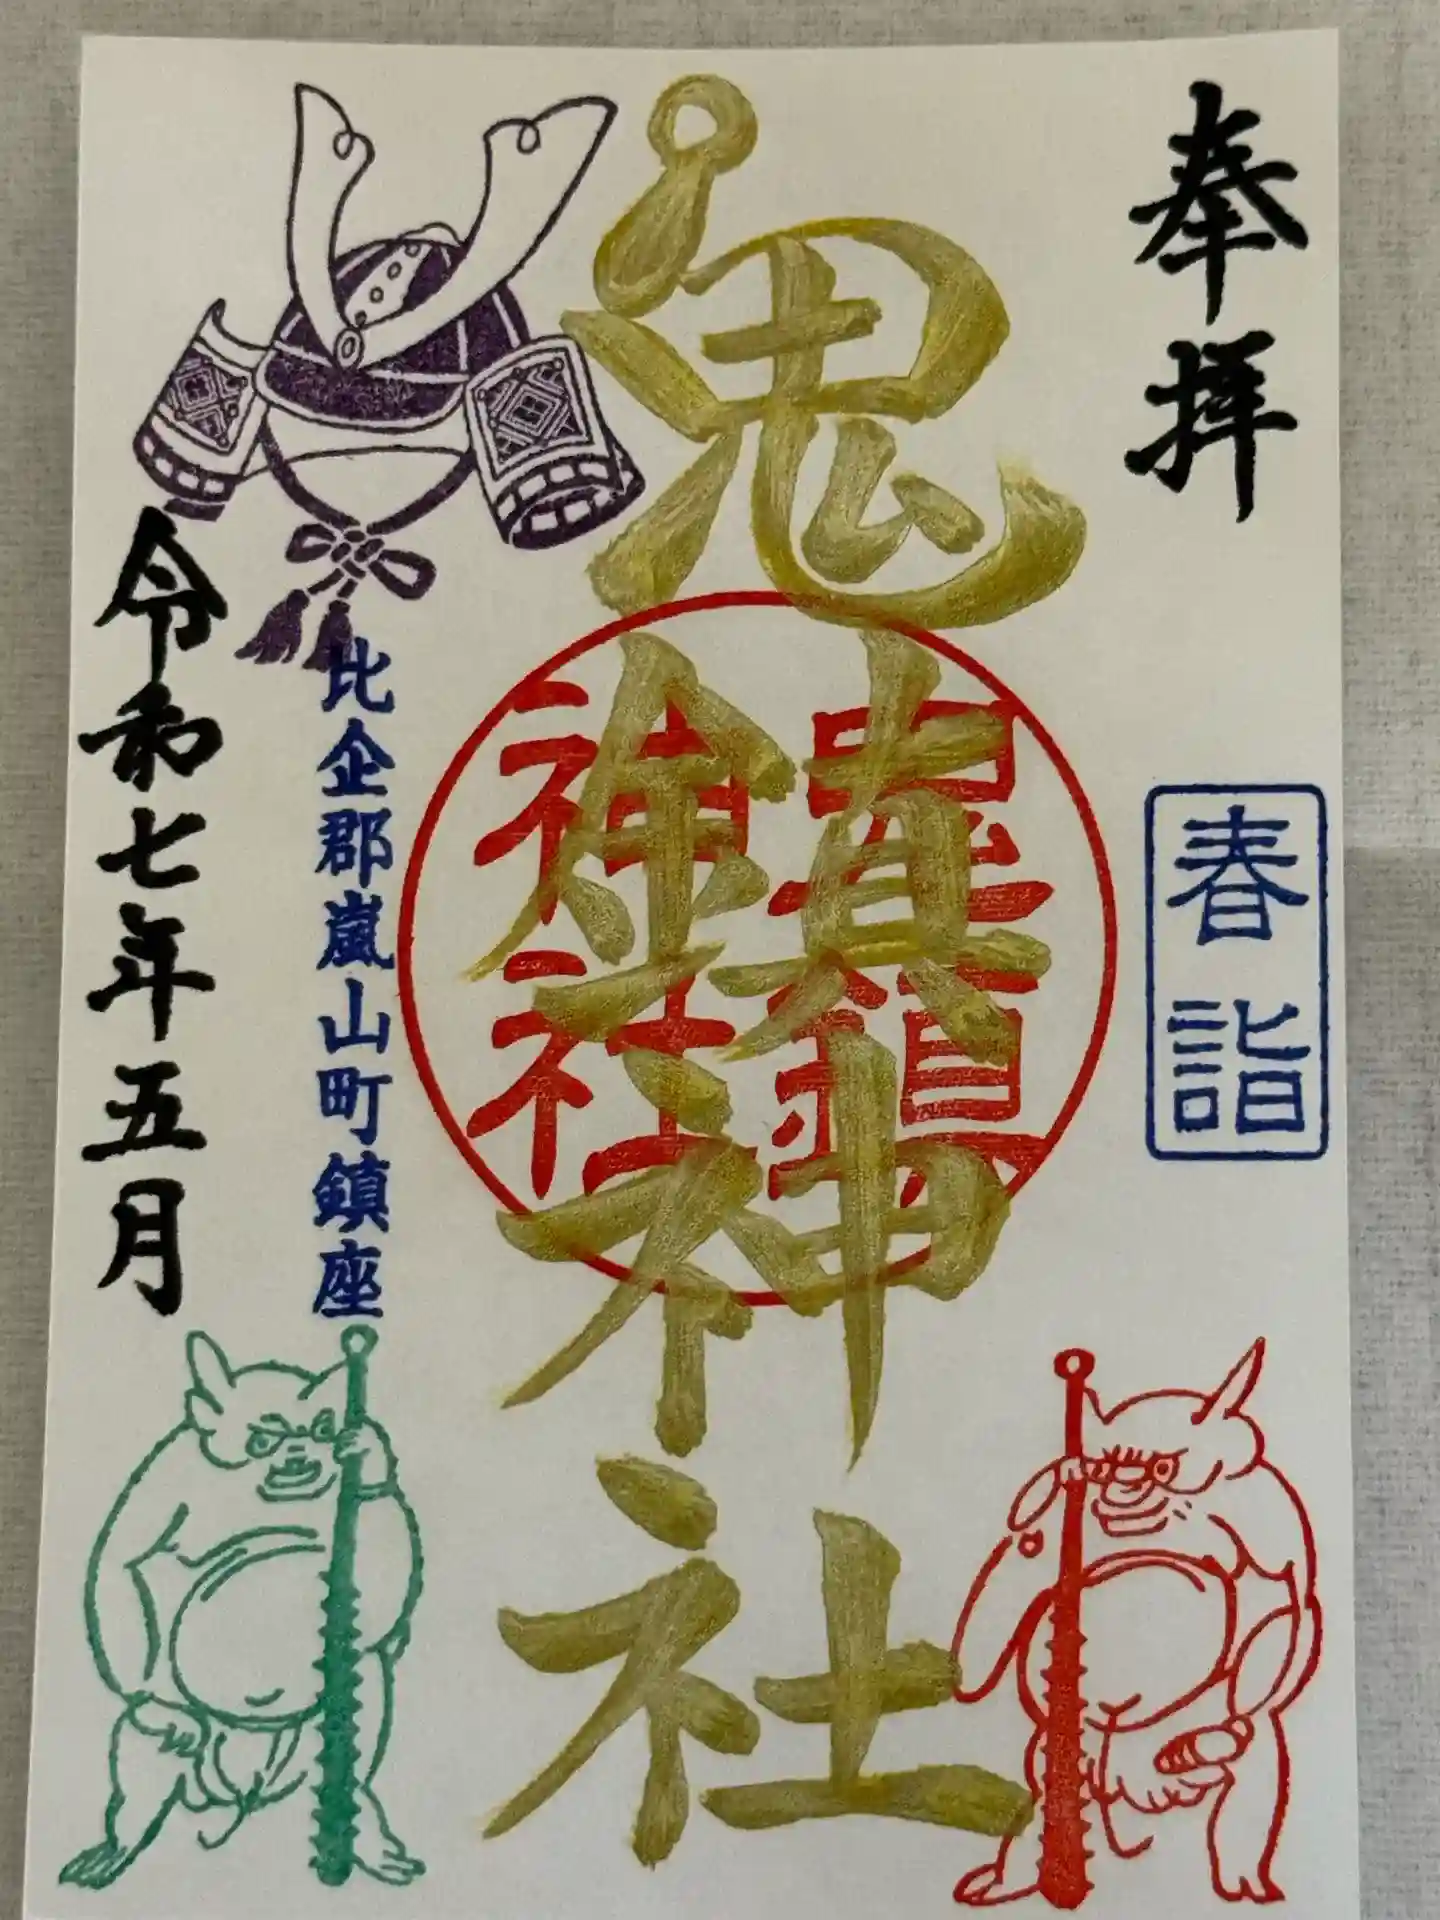 奉拝
春詣
鬼鎮神社
鬼鎮
神社
比企郡嵐山町鎮座
令和七年五月